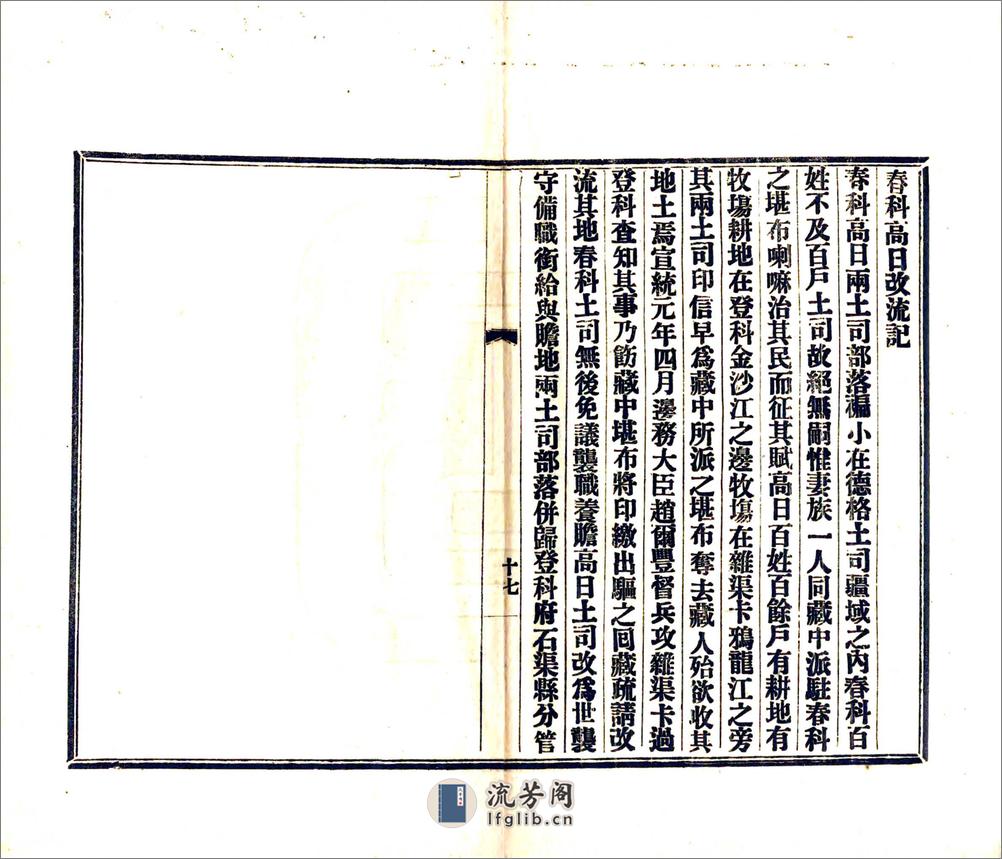 春科高日改流記
春科高日兩土司部落褊小在德格土司疆域之內春科百
姓不及百戶土司故絕無嗣惟妻族一人同藏中派駐春科
之堪布喇嘛治其民而征其賦高日百姓百餘戶有耕地有
牧塲耕地在登科金沙江之邊牧塲在雜渠卡鴉龍江之旁
其兩土司印信早爲藏中所派之堪布奪去藏人殆欲收其
地土焉宣統元年四月邊務大臣趙爾豐督兵攻雜渠卡過
登科查知其事乃飭藏中堪布將印繳出驅之囘藏疏請改
流其地春科土司無後免議襲職養贍高日土司改爲世襲
守備職銜給與贍地兩土司部落併歸登科府石渠縣分管
十七
流芳阁
lfglib.cn